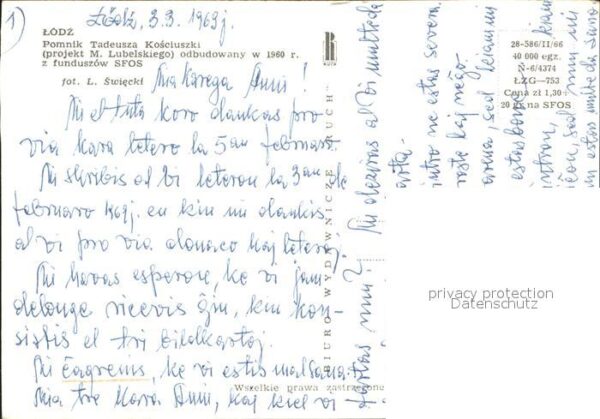 1)
Łódź, 3.3. 1969j.
ŁÓDŹ
Pomnik Tadeusza Kościuszki
(projekt M. Lubelskiego) odbudowany w 1960 r.
z funduszów SFOS
fot. L. Święcki
Mia karega Anni!
Mi el tuta koro dankas pro
via kara letero la 5an februaro.
Mi skribis al vi leteron la 3an de
februaro kaj en kiu mi dankis
al vi pro via donaco kaj leteroj.
Mi havas esperon, ke vi jam
delonge ricevis ĝin, kiu kon-
sistis el tri bildkartoj.
Mi ĉagrenis, ke vi estis malsana.
Mia tre kara Anni, kaj kiel vi
fartas nun? Mi deziras al vi
BIURO WYDAWNICZE „RUCH"
Wszelkie prawa zastrzeżone
intro ne estas severa
kaj
sed
estas
28-586/II/66
40 000 egz.
N-6/4374
ŁZG—753
Cena zł 1,30+
20 gr na SFOS
privacy protection
Datenschutz